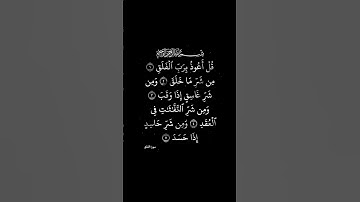 بسم الله الرحمن الرحيم
قُلْ أَعُوذُ بِرَبِّ ٱلْفَلَقِ ١
مِن شَرِّ مَا خَلَقَ ٢ وَمِن
شَرِّ غَاسِقٍ إِذَا وَقَبَ ٣
وَمِن شَرِّ ٱلنَّفَّـٰثَـٰتِ فِى
ٱلْعُقَدِ ٤ وَمِن شَرِّ حَاسِدٍ
إِذَا حَسَدَ ٥
سورة الفلق